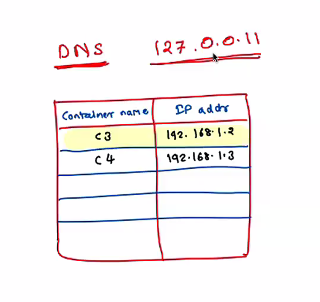 DNS 127.0.0.11
Container name IP addr
C3 192.168.1.2
C4 192.168.1.3